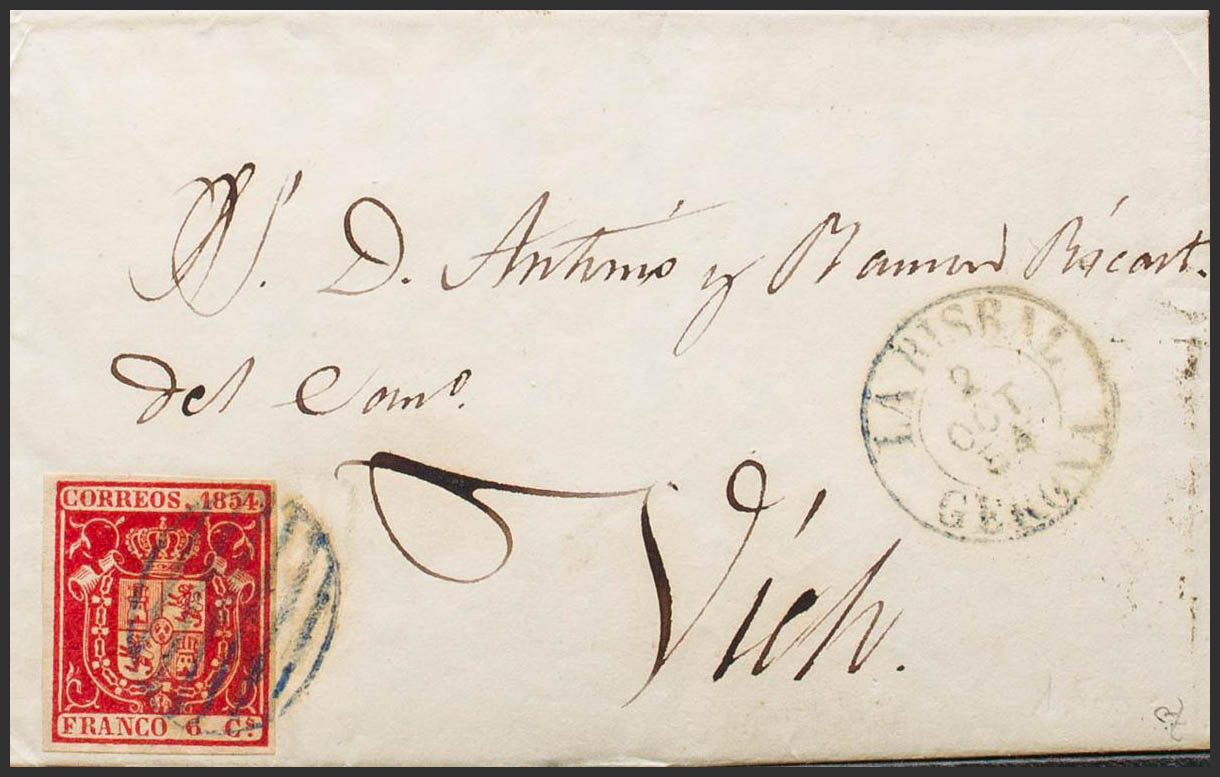 S. D. Antonio y Ramon Ricart.
del Com.º
Vich.
LA BISBAL
2
OCT
54
GERONA
CORREOS 1854
FRANCO 6 Cs